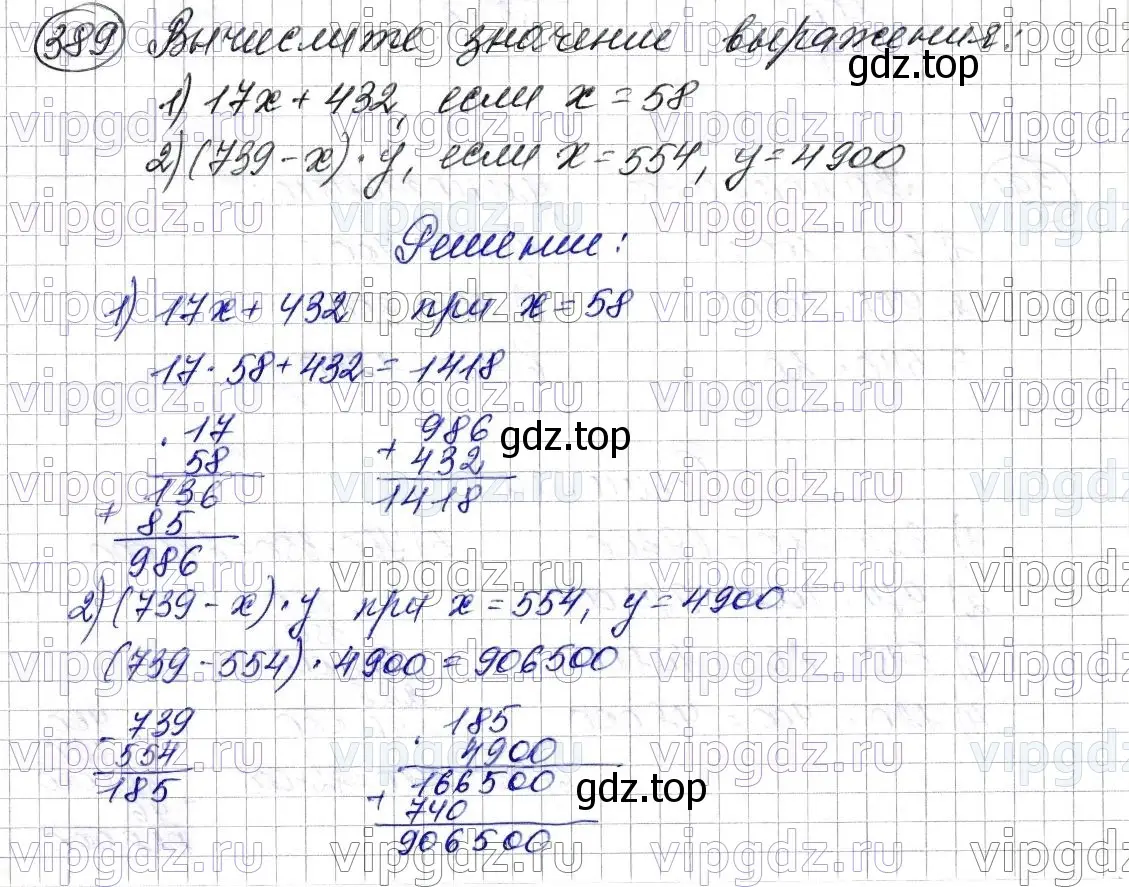 389 Вычислите значение выражения:
gdz.top
1) 17x + 432, если x = 58
2) (739 - x) · y, если x = 554, y = 4900
Решение:
1) 17x + 432 при x = 58
17 · 58 + 432 = 1418
· 17 986
gdz.top
58 + 432
136 1418
+ 85
986
2) (739 - x) · y при x = 554, y = 4900
(739 - 554) · 4900 = 906500
- 739 · 185
554 4900
185 166500
gdz.top
+ 740
906500
vipgdz.ru